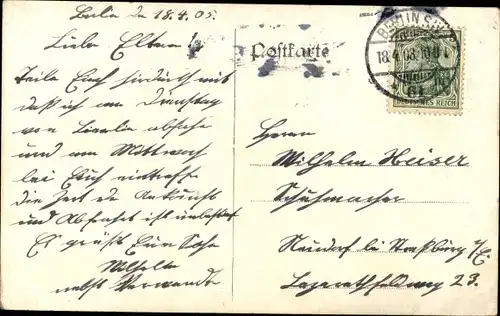 Berlin den 18.4.05.
Liebe Eltern!
Teile Euch hierdurch mit
daß ich am Dienstag
von Berlin abfahre
und am Mittwoch
bei Euch eintreffe
die Zeit der Ankunft
und Abfahrt ist unbestimmt
Es grüßt Euer Sohn
Wilhelm
nebst Verwandte
Postkarte
BERLIN S.W.
18.4.05. 10-11
61
DEUTSCHES REICH
Herrn
Wilhelm Heiser
Schuhmacher
Neudorf bei Straßburg i/E.
Lazarethfeldweg 23.